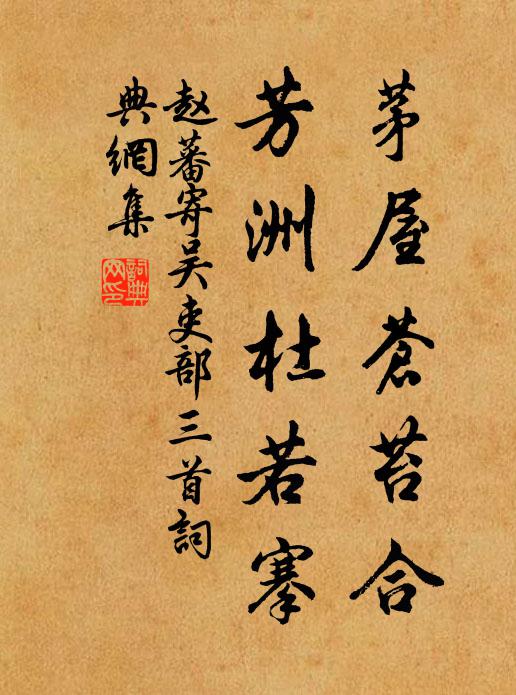 茅屋蒼苔合
芳洲杜若搴
赵蕃寄吴吏部三首詞
典網集
詞典
网印